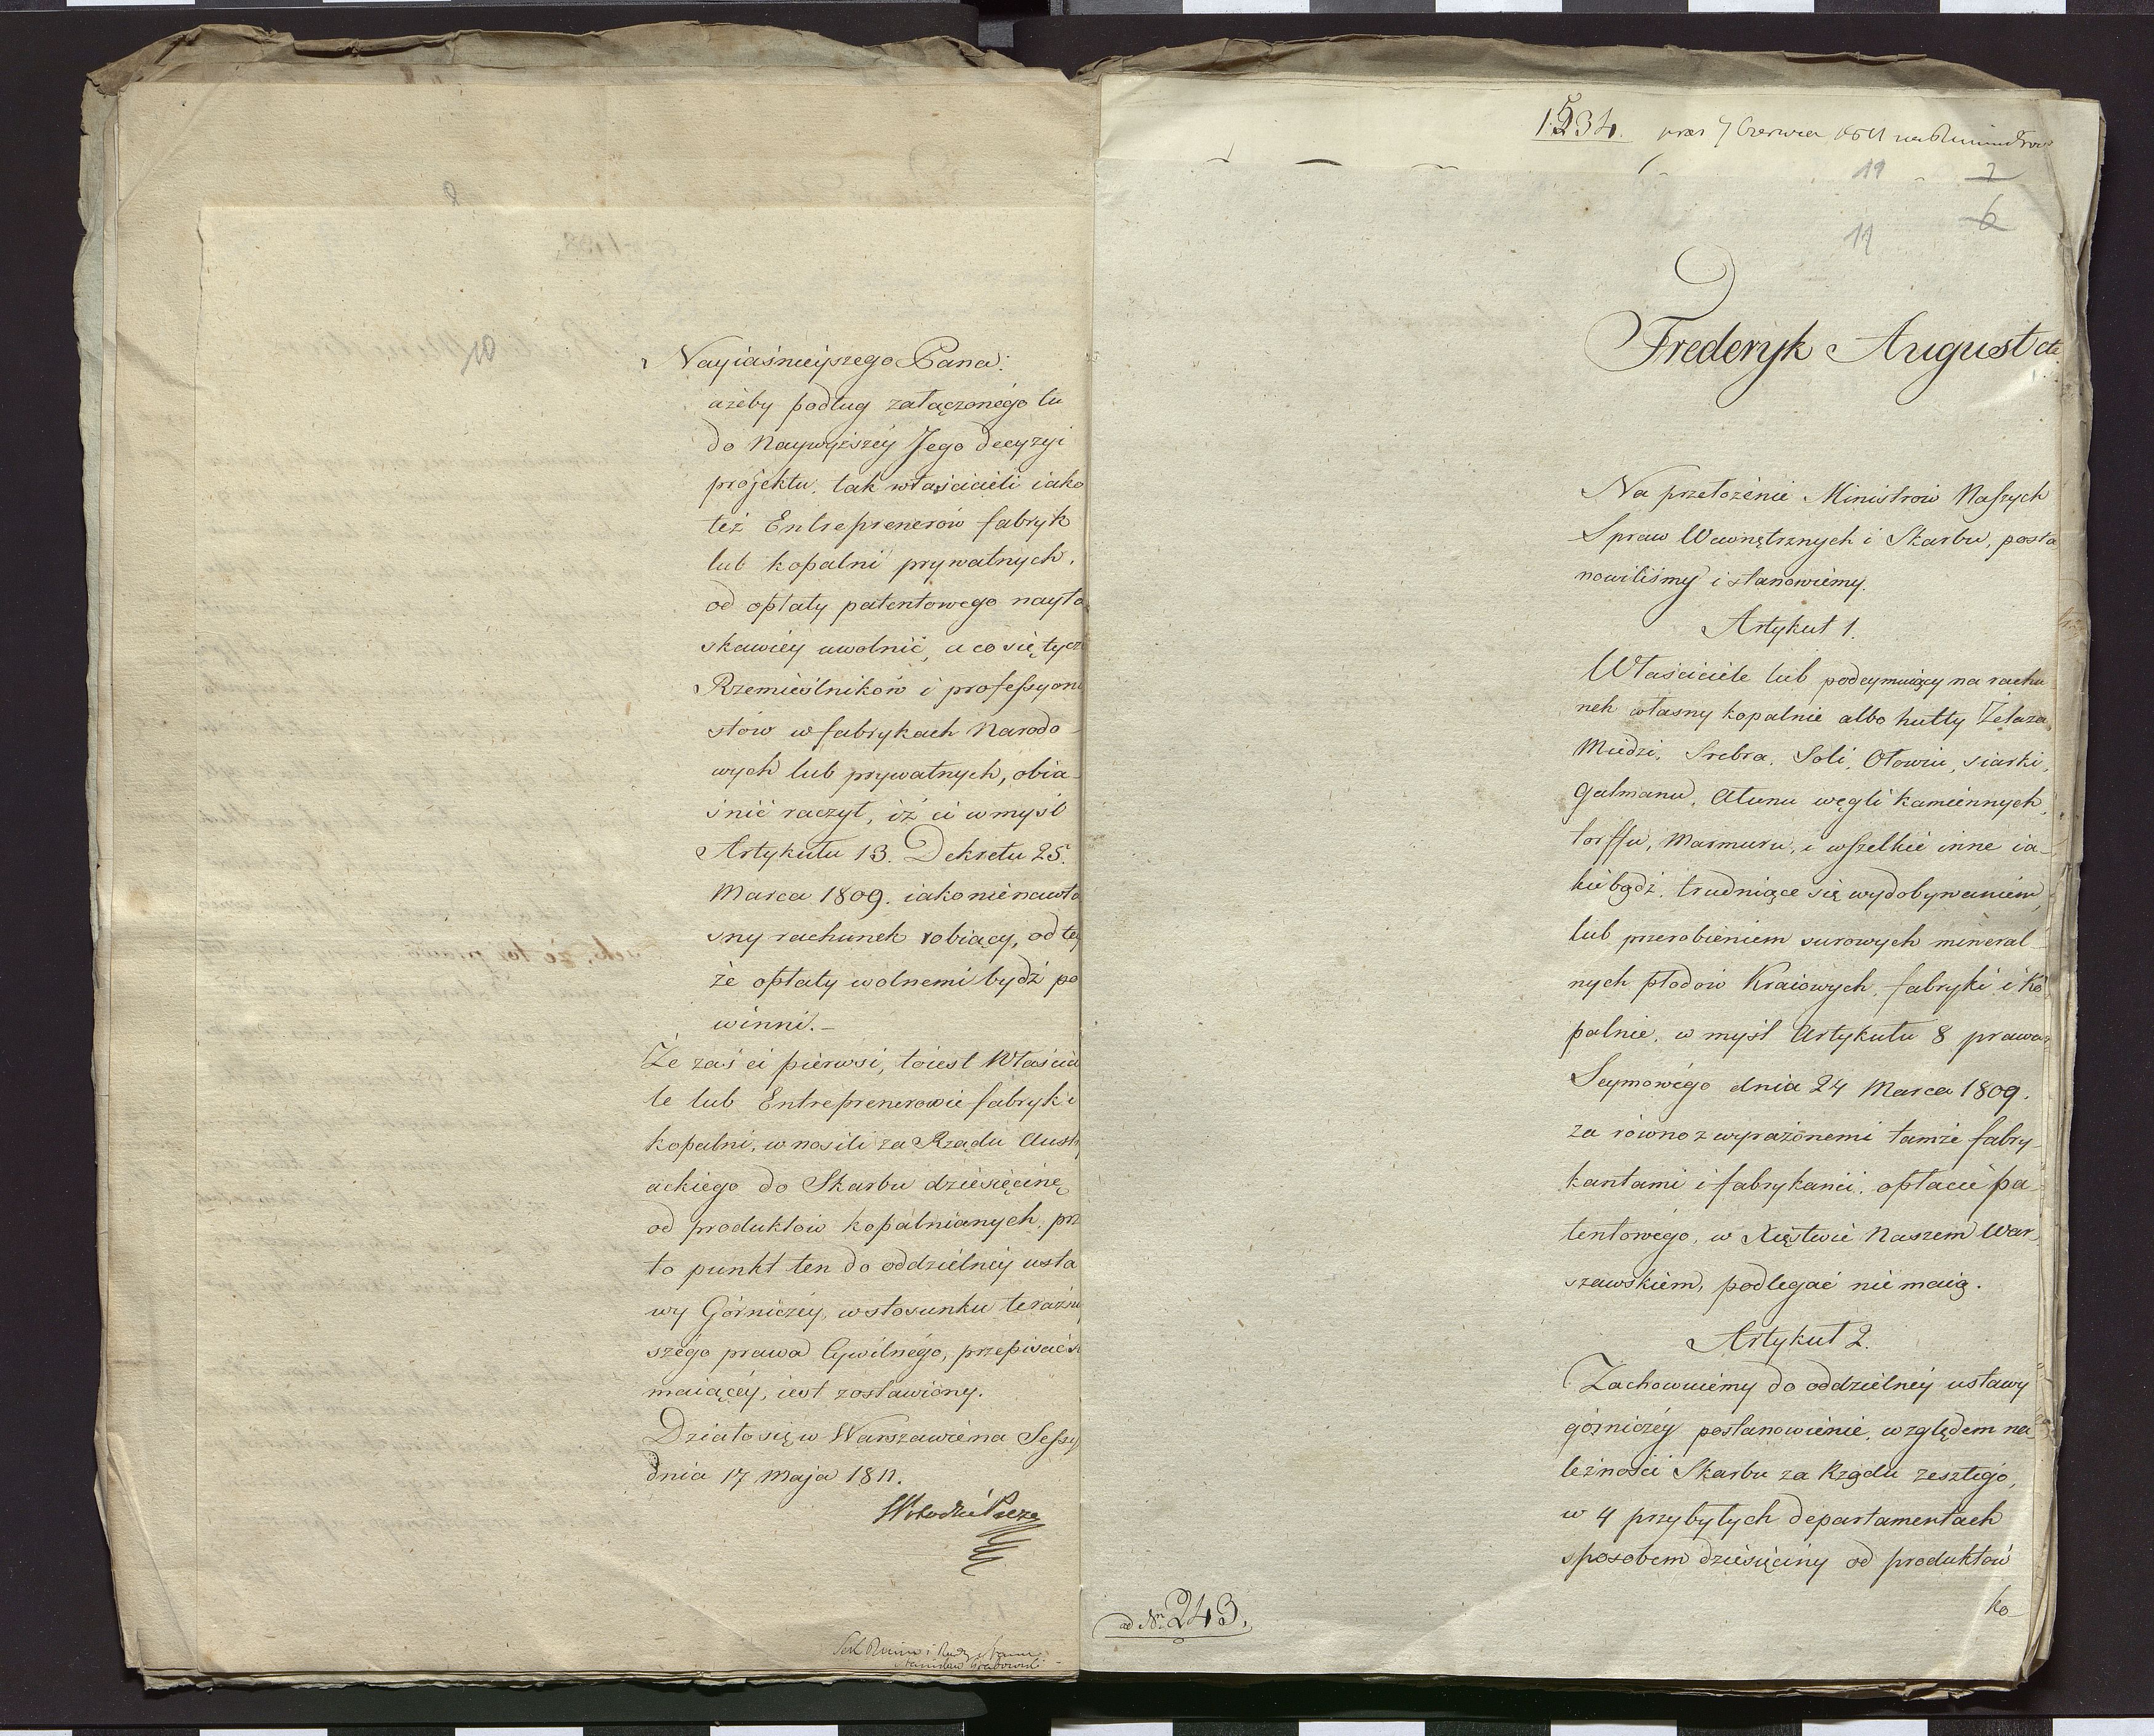 8
10
Nayiaśnieyszego Pana:
ażeby podług załączonégo tu
do Naywyższéy Jego decyzyi
projektu, tak właścicieli iako
też Entreprenerów fabryk
lub kopalni prywatnych,
od opłaty patentowego nayła
skawiéy uwolnić, a co się tycz
Rzemieślników i professyoni
stów w fabrykach Narodo-
wych lub prywatnych, obia-
śnić raczył, iż ci w myśl
Artykułu 13. Dekretu 25.
Marca 1809. iako nie na wła
sny rachunek robiący, od tey
że opłaty wolnemi bydź po
winni.-
Że zaś ci piérwsi, toiest Właścicie
le lub Entreprenerowie fabryk i
kopalni, wnosili za Rządu Austr
ackiego do Skarbu dziesięcinę
od produktów kopalnianych, prz
to punkt ten do oddzielnéy usta
wy Górniczéy, w stosunku teraźni
szégo prawa Cywilnégo, przepisać si
maiącéy, iest zostawiony.
Działo się w Warszawie na Sessy
dnia 17 Maja 1811.
Stanisław Grabowski
1534. 7 Czerwca 1811
19
7
6
11
Frederyk August etc.
Na przełożénie Ministrów Naszych
Spraw Wewnętrznych i Skarbu, posta
nowiliśmy i stanowiémy.
Artykuł 1.
Właściciele lub podeymuiący na rachu
nek własny kopalnie albo hutty Żelaza
Miedzi, Srebra, Soli, Ołowiu, siarki,
Galmanu, Ałunu węgli kamiennych,
torffu, Marmuru, i wszelkie inne ia-
kiébądź, trudniące się wydobywaniem,
lub przerobieniem surowych mineral-
nych płodów Kraiowych, fabryki i ko
palnie, w myśl Artykułu 8 prawa
Seymowégo dnia 24 Marca 1809.
za równo z wyrażonemi tamże fabry-
kantami i fabrykami, opłacie pa-
tentowégo, w Xięstwie Naszem War-
szawskiem, podlegać nie maią.
Artykuł 2.
Zachowuiémy do oddzielnéy ustawy
górniczéy postanowiénie, względem na
leżności Skarbu za Rządu zeszłégo,
w 4 przybyłych departamentach
sposobem dziesięciny od produktów
ko-
ad Nr. 243.